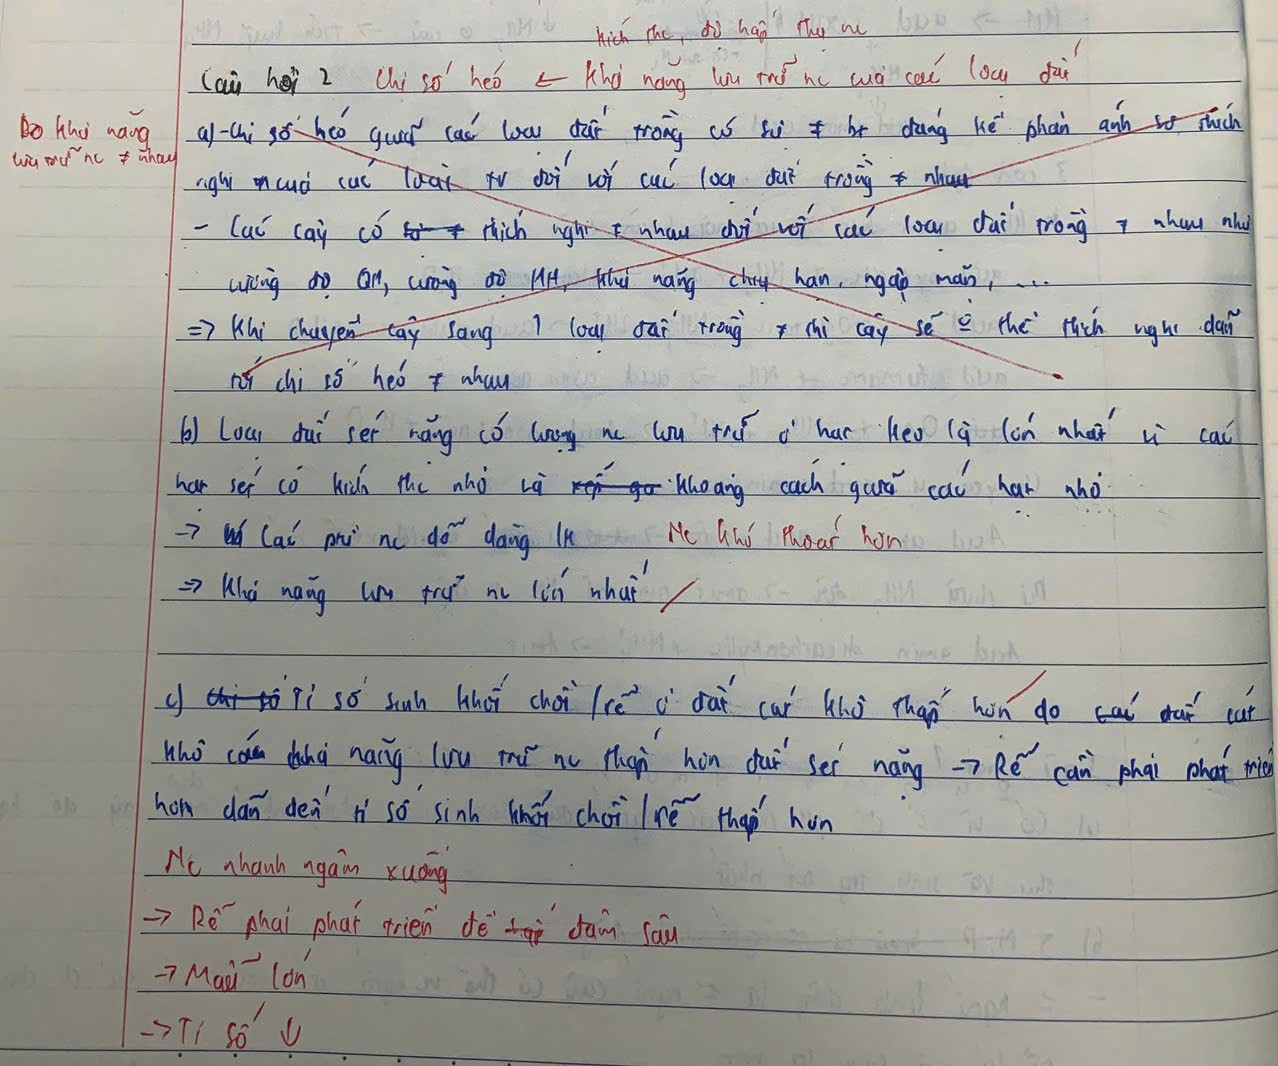 kích thc, độ hấp thụ nc
Câu hỏi 2 Chỉ số héo ← Khả năng lưu trữ nc của các loại đất
Do khả năng
lưu trữ nc ≠ nhau
a) - Chỉ số héo giữa các loại đất trồng có sự ≠ bt đáng kể phản ánh sự thích
nghi của các loài tv đối với các loại đất trồng ≠ nhau
- Các cây có sự ≠ thích nghi ≠ nhau đối với các loại đất trồng ≠ nhau như
cường độ QH, cường độ HH, khả năng chịu hạn, ngập mặn, ....
=> Khi chuyển cây sang 1 loại đất trồng ≠ thì cây sẽ thể thích nghi dẫn
tới chỉ số héo ≠ nhau
b) Loại đất sét nặng có lượng nc lưu trữ ở hạt keo là lớn nhất vì các
hạt sét có kích thc nhỏ và khoảng cách giữa các hạt nhỏ
→ Các ptử nc dễ dàng lk Nc khó thoát hơn
=> Khả năng lưu trữ nc lớn nhất
c) Chỉ số Tỉ số sinh khối chồi/rễ ở đất cát khô thấp hơn do các đất cát
khô có khả năng lưu trữ nc thấp hơn đất sét nặng → Rễ cần phải phát triển
hơn dẫn đến tỉ số sinh khối chồi/rễ thấp hơn
Nc nhanh ngấm xuống
→ Rễ phải phát triển để đâm sâu
→ Mẫu lớn
→ Tỉ số ↓